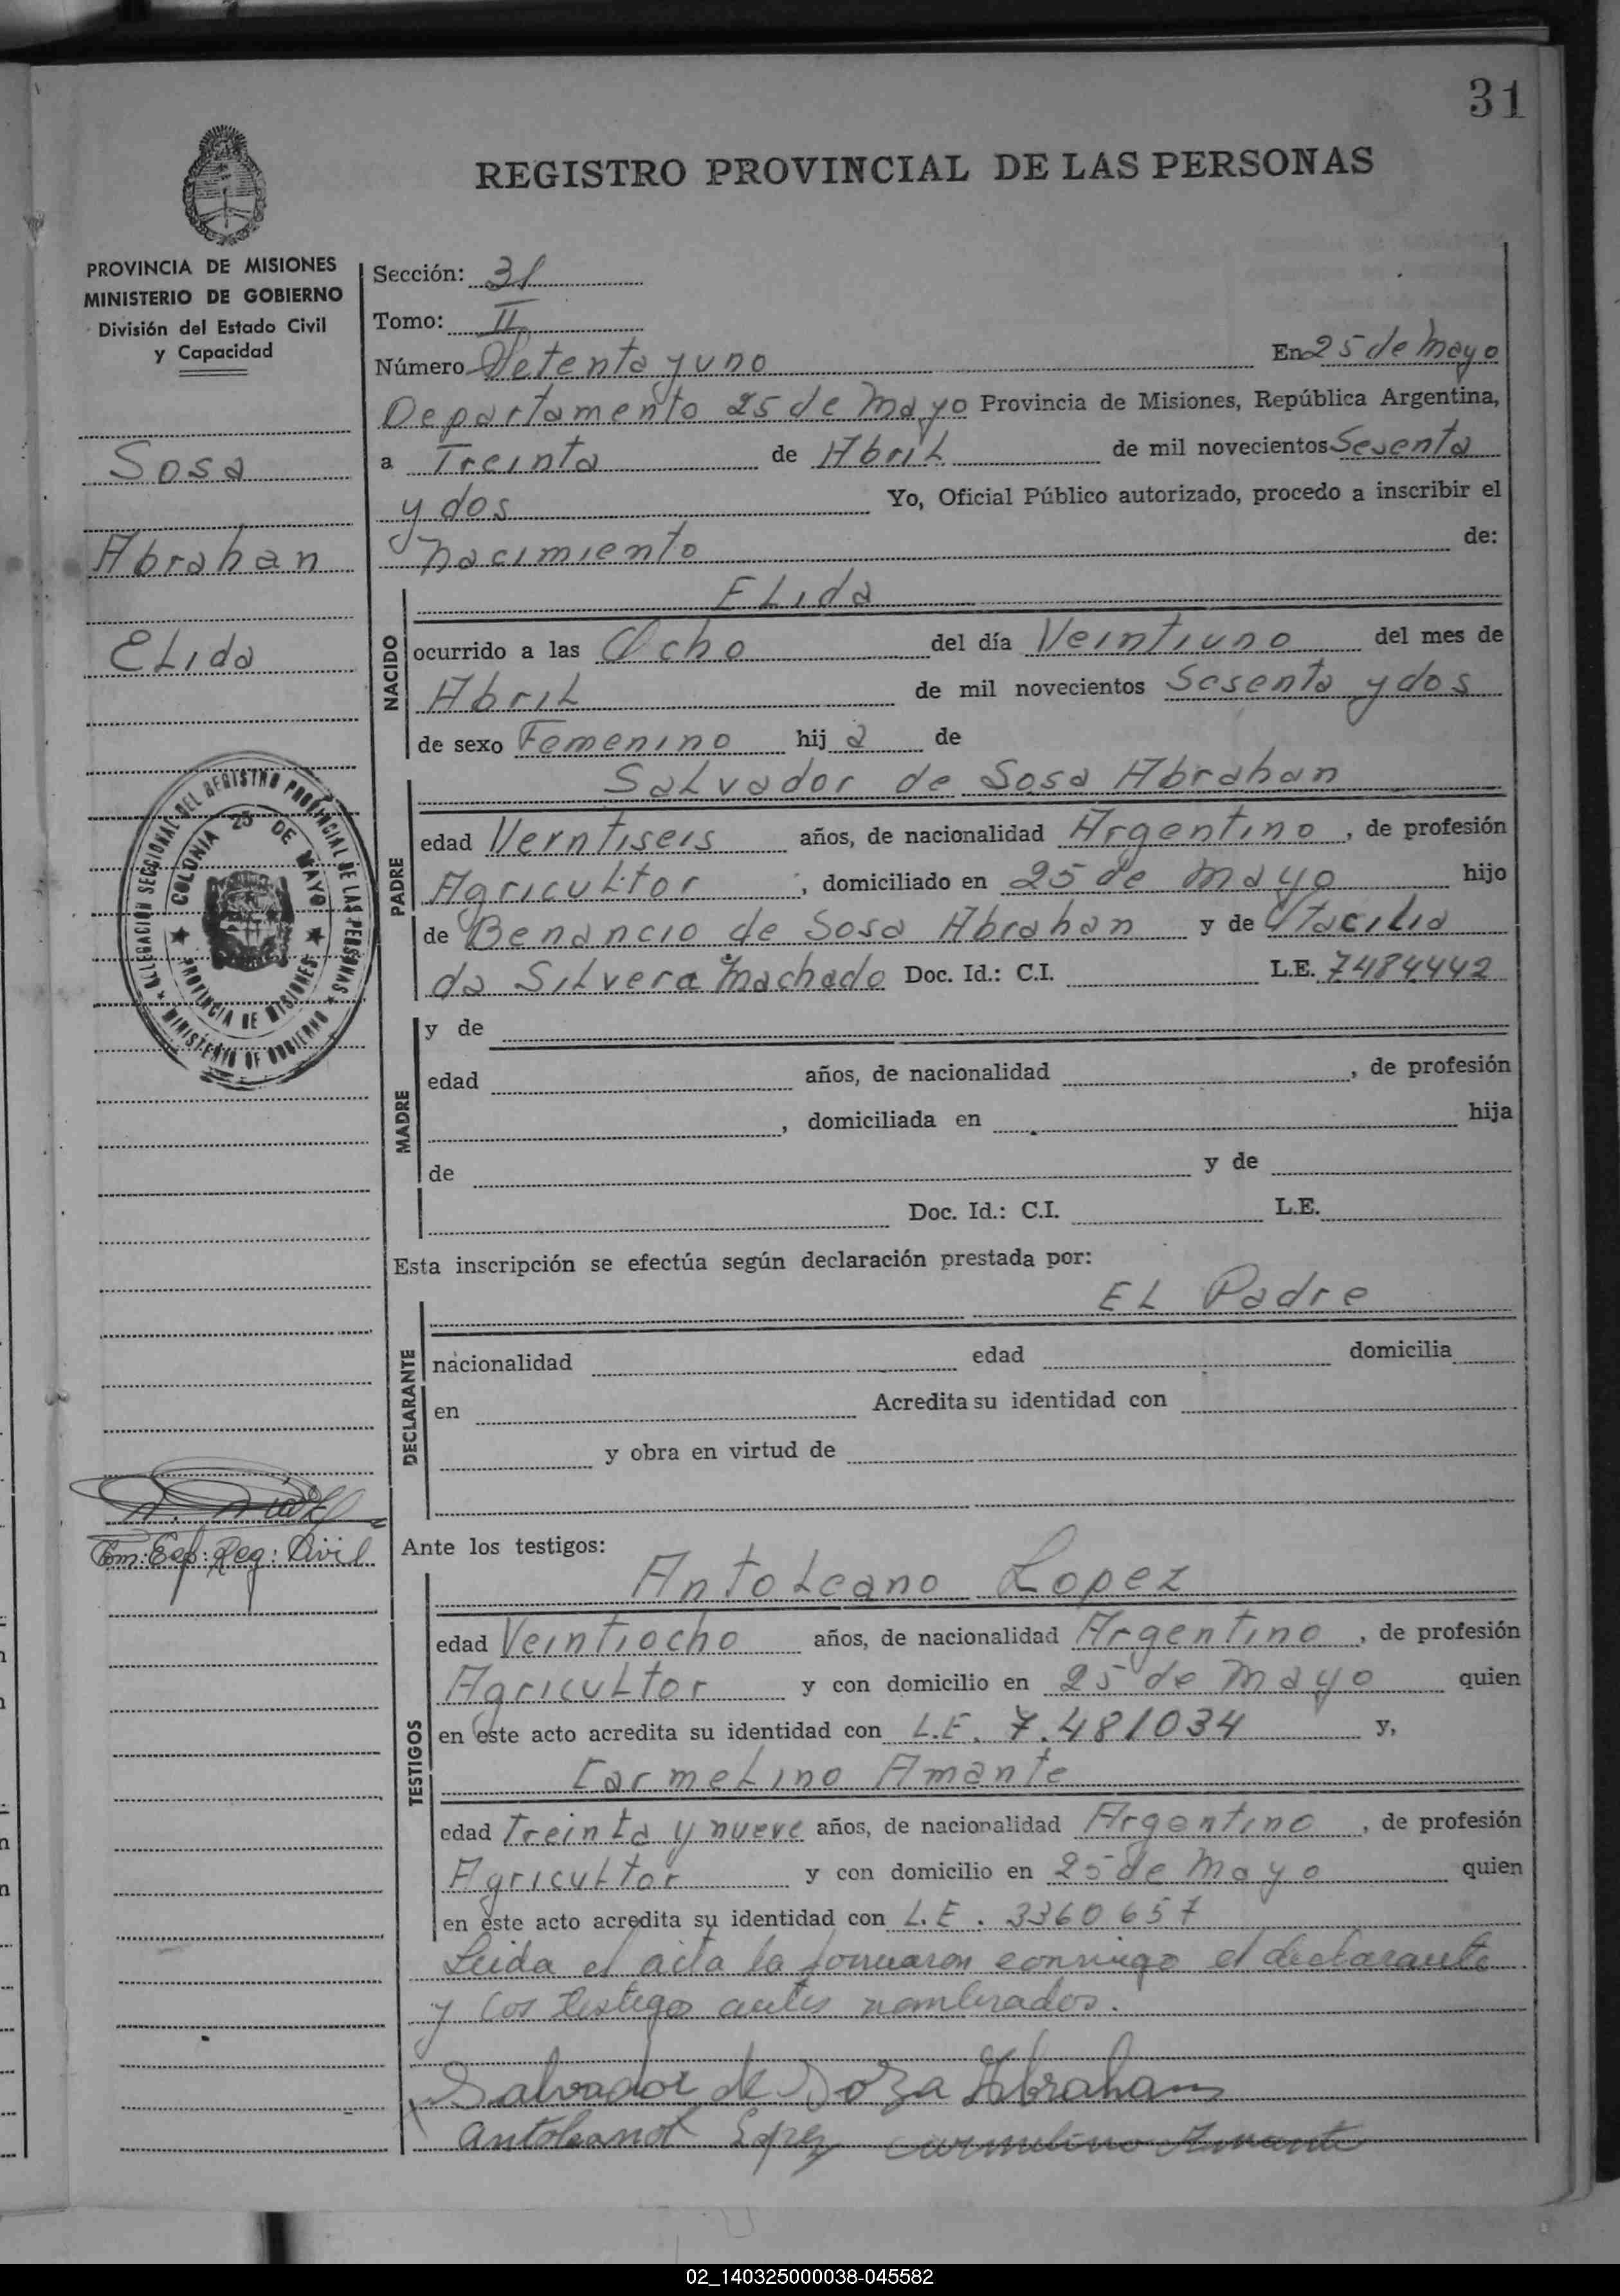 31
REGISTRO PROVINCIAL DE LAS PERSONAS
PROVINCIA DE MISIONES
MINISTERIO DE GOBIERNO
División del Estado Civil
y Capacidad
Sosa
Abrahan
ELida
DELEGACIÓN SECCIONAL DEL REGISTRO PROVINCIAL DE LAS PERSONAS
COLONIA 25 DE MAYO
PROVINCIA DE MISIONES
MINISTERIO DE GOBIERNO
Reg: Civil
Sección: 31
Tomo: II
Número Setenta y uno En 25 de mayo
Departamento 25 de mayo Provincia de Misiones, República Argentina,
a Treinta de AbriL de mil novecientos Sesenta
y dos Yo, Oficial Público autorizado, procedo a inscribir el
nacimiento de:
NACIDO
ELida
ocurrido a las Ocho del día Veintiuno del mes de
AbriL de mil novecientos Sesenta y dos
de sexo Femenino hij a de
PADRE
SaLvador de Sosa Abrahan
edad Verntiseis años, de nacionalidad Argentino, de profesión
AgricuLtor, domiciliado en 25 de mayo hijo
de Benancio de Sosa Abrahan y de Otacilia
da SiLvera machado Doc. Id.: C.I. L.E. 7484442
MADRE
y de
edad años, de nacionalidad , de profesión
, domiciliada en hija
de y de
Doc. Id.: C.I. L.E.
Esta inscripción se efectúa según declaración prestada por:
EL Padre
DECLARANTE
nacionalidad edad domicilia
en Acredita su identidad con
y obra en virtud de
Ante los testigos:
TESTIGOS
AntoLeano Lopez
edad Veintiocho años, de nacionalidad Argentino, de profesión
AgricuLtor y con domicilio en 25 de mayo quien
en este acto acredita su identidad con L.E. 7.481034 y,
CarmeLino Amante
edad Treinta y nueve años, de nacionalidad Argentino, de profesión
AgricuLtor y con domicilio en 25 de mayo quien
en este acto acredita su identidad con L.E. 3360657
Leida el acta la firmaron conmigo el declarante
y los testigos antes nombrados.
Salvador de Soza Abraham
Antoleano Lopez Carmelino Amante
02_140325000038-045582